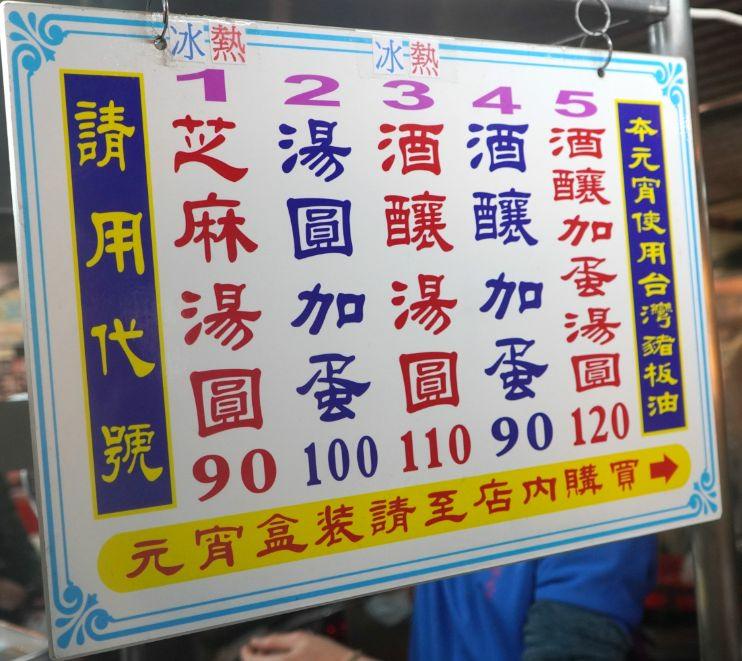 冰 熱
冰 熱
請用代號
1 芝麻湯圓 90
2 湯圓加蛋 100
3 酒釀湯圓 110
4 酒釀加蛋 90
5 酒釀加蛋湯圓 120
本元宵使用台灣豬板油
元宵盒装請至店內購買